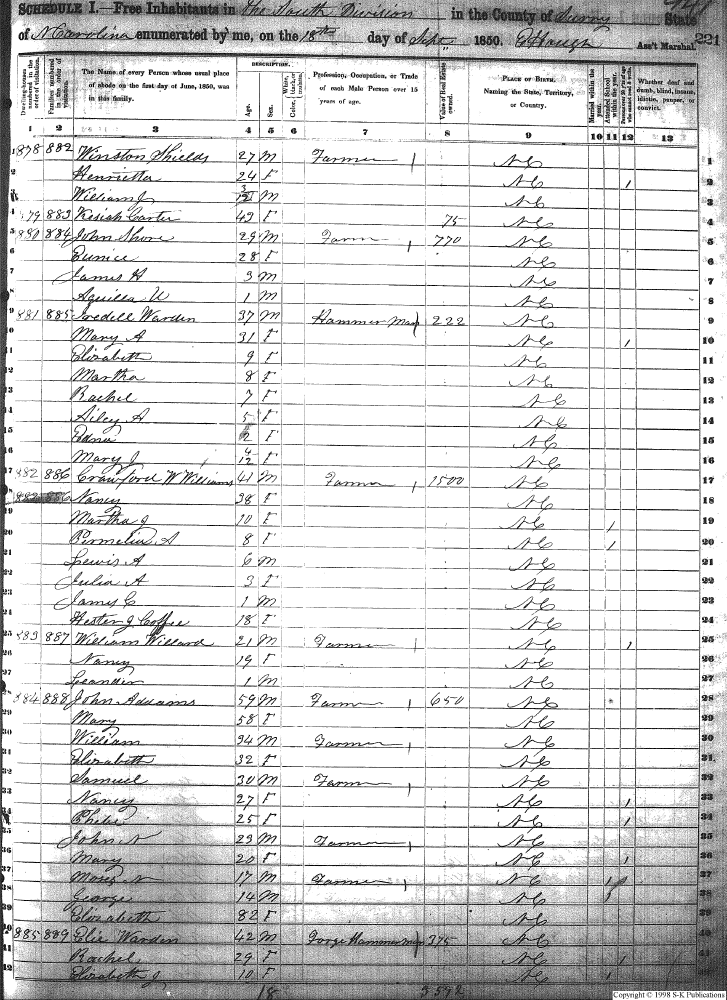 SCHEDULE I.—Free Inhabitants in The South Division in the County of Surry State
of N Carolina enumerated by me, on the 18th day of Sept 1850. Ass't Marshal. 221
Dwelling-houses numbered in the order of visitation.
Families numbered in the order of visitation.
The Name of every Person whose usual place of abode on the first day of June, 1850, was in this family.
DESCRIPTION.
Age.
Sex.
Color, White, black, or mulatto.
Profession, Occupation, or Trade of each Male Person over 15 years of age.
Value of Real Estate owned.
PLACE OF BIRTH. Naming the State, Territory, or Country.
Married within the year.
Attended School within the year.
Whether deaf and dumb, blind, insane, idiotic, pauper, or convict.
1 2 3 4 5 6 7 8 9 10 11 12 13
1 878 882 Winston Shields 27 M Farmer 1 NC 1
Henrietta 24 F NC 1 2
William J 3/12 M NC 3
879 883 Kesiah Carter 43 F 75 NC 4
880 884 John Shore 29 M Farmer 1 770 NC 5
Eunice 28 F NC 6
James H 3 M NC 7
Aquilla U 1 M NC 8
881 885 Iredell Warden 37 M Hammer Man 222 NC 9
Mary A 31 F NC 1 10
Elizabeth 9 F NC 11
Martha 8 F NC 12
Rachel 7 F NC 13
Ailey A 5 F NC 14
Edna 2 F NC 15
Mary J 4/12 F NC 16
882 886 Crawford W Williams 41 M Farmer 1 1500 NC 17
Nancy 38 F NC 18
Martha J 10 F NC 1 19
Permelia A 8 F NC 1 20
Lewis A 6 M NC 21
Julia A 3 F NC 22
James C 1 M NC 23
Hester J Coffee 18 F NC 24
883 887 William Willard 21 M Farmer 1 NC 1 25
Nancy 19 F NC 26
Leander 1 M NC 27
884 888 John Addams 59 M Farmer 1 650 NC 28
Mary 58 F NC 29
William 34 M Farmer 1 NC 30
Elizabeth 32 F NC 31
Samuel 30 M Farmer 1 NC 32
Nancy 27 F NC 1 33
Phebe 25 F NC 1 34
John N 23 M Farmer 1 NC 35
Mary 20 F NC 1 36
N 17 M Farmer 1 NC 1 37
George 14 M NC 1 38
Elizabeth 82 F NC 39
885 889 Elie Warden 42 M Forge Hammerman 375 NC 40
Rachel 29 F NC 1 41
Elizabeth J 10 F NC 1 42
18 3592
Copyright © 1998 S-K Publications